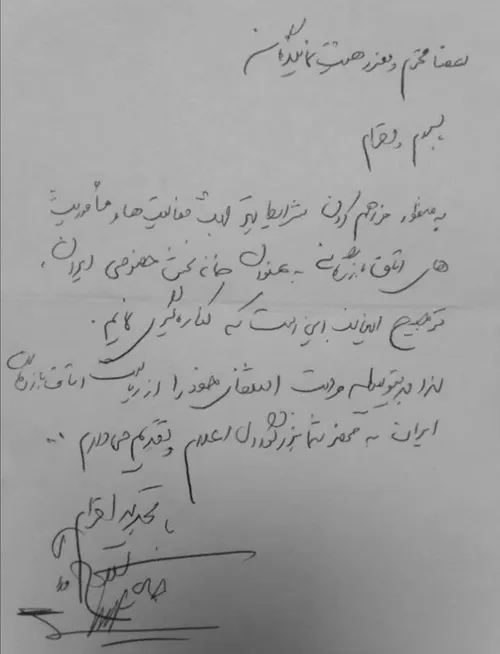 اعضا محترم و معزز هیئت نمایندگان
با سلام و احترام
به منظور فراهم کردن شرایط بهتر جهت فعالیت ها و مأموریت
های اتاق بازرگانی به عنوان خانه بخش خصوصی ایران،
ترجیح اینجانب این است که کناره گیری نمایم.
لذا بدینوسیله مراتب استعفای خود را از ریاست اتاق بازرگانی
ایران به محضر شما بزرگواران اعلام و تقدیم می دارم ...
با تجدید احترام